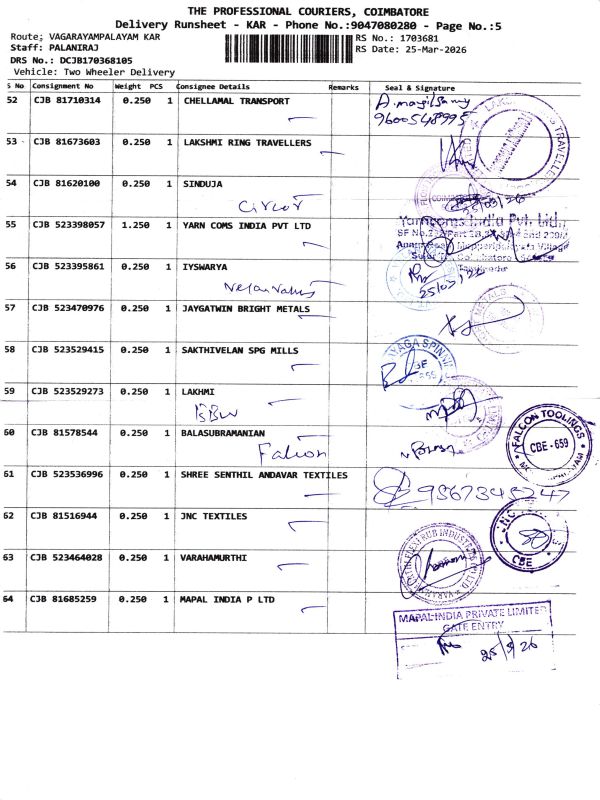 THE PROFESSIONAL COURIERS, COIMBATORE
Delivery Runsheet - KAR - Phone No.:9047080280 - Page No.:5
Route; VAGARAYAMPALAYAM KAR RS No.: 1703681
Staff: PALANIRAJ RS Date: 25-Mar-2026
DRS No.: DCJB170368105
Vehicle: Two Wheeler Delivery
S No Consignment No Weight PCS Consignee Details Remarks Seal & Signature
52 CJB 81710314 0.250 1 CHELLAMAL TRANSPORT
9600548995
53 CJB 81673603 0.250 1 LAKSHMI RING TRAVELLERS
54 CJB 81620100 0.250 1 SINDUJA
Circot
55 CJB 523398057 1.250 1 YARN COMS INDIA PVT LTD Yarncoms India Pvt. Ltd.,
56 CJB 523395861 0.250 1 IYSWARYA
57 CJB 523470976 0.250 1 JAYGATWIN BRIGHT METALS
58 CJB 523529415 0.250 1 SAKTHIVELAN SPG MILLS
59 CJB 523529273 0.250 1 LAKHMI
60 CJB 81578544 0.250 1 BALASUBRAMANIAN
Falcon
FALCON TOOLINGS
CBE-659
61 CJB 523536996 0.250 1 SHREE SENTHIL ANDAVAR TEXTILES
62 CJB 81516944 0.250 1 JNC TEXTILES
CBE
63 CJB 523464028 0.250 1 VARAHAMURTHI
64 CJB 81685259 0.250 1 MAPAL INDIA P LTD
MAPAL INDIA PRIVATE LIMITED
GATE ENTRY
25/3/26